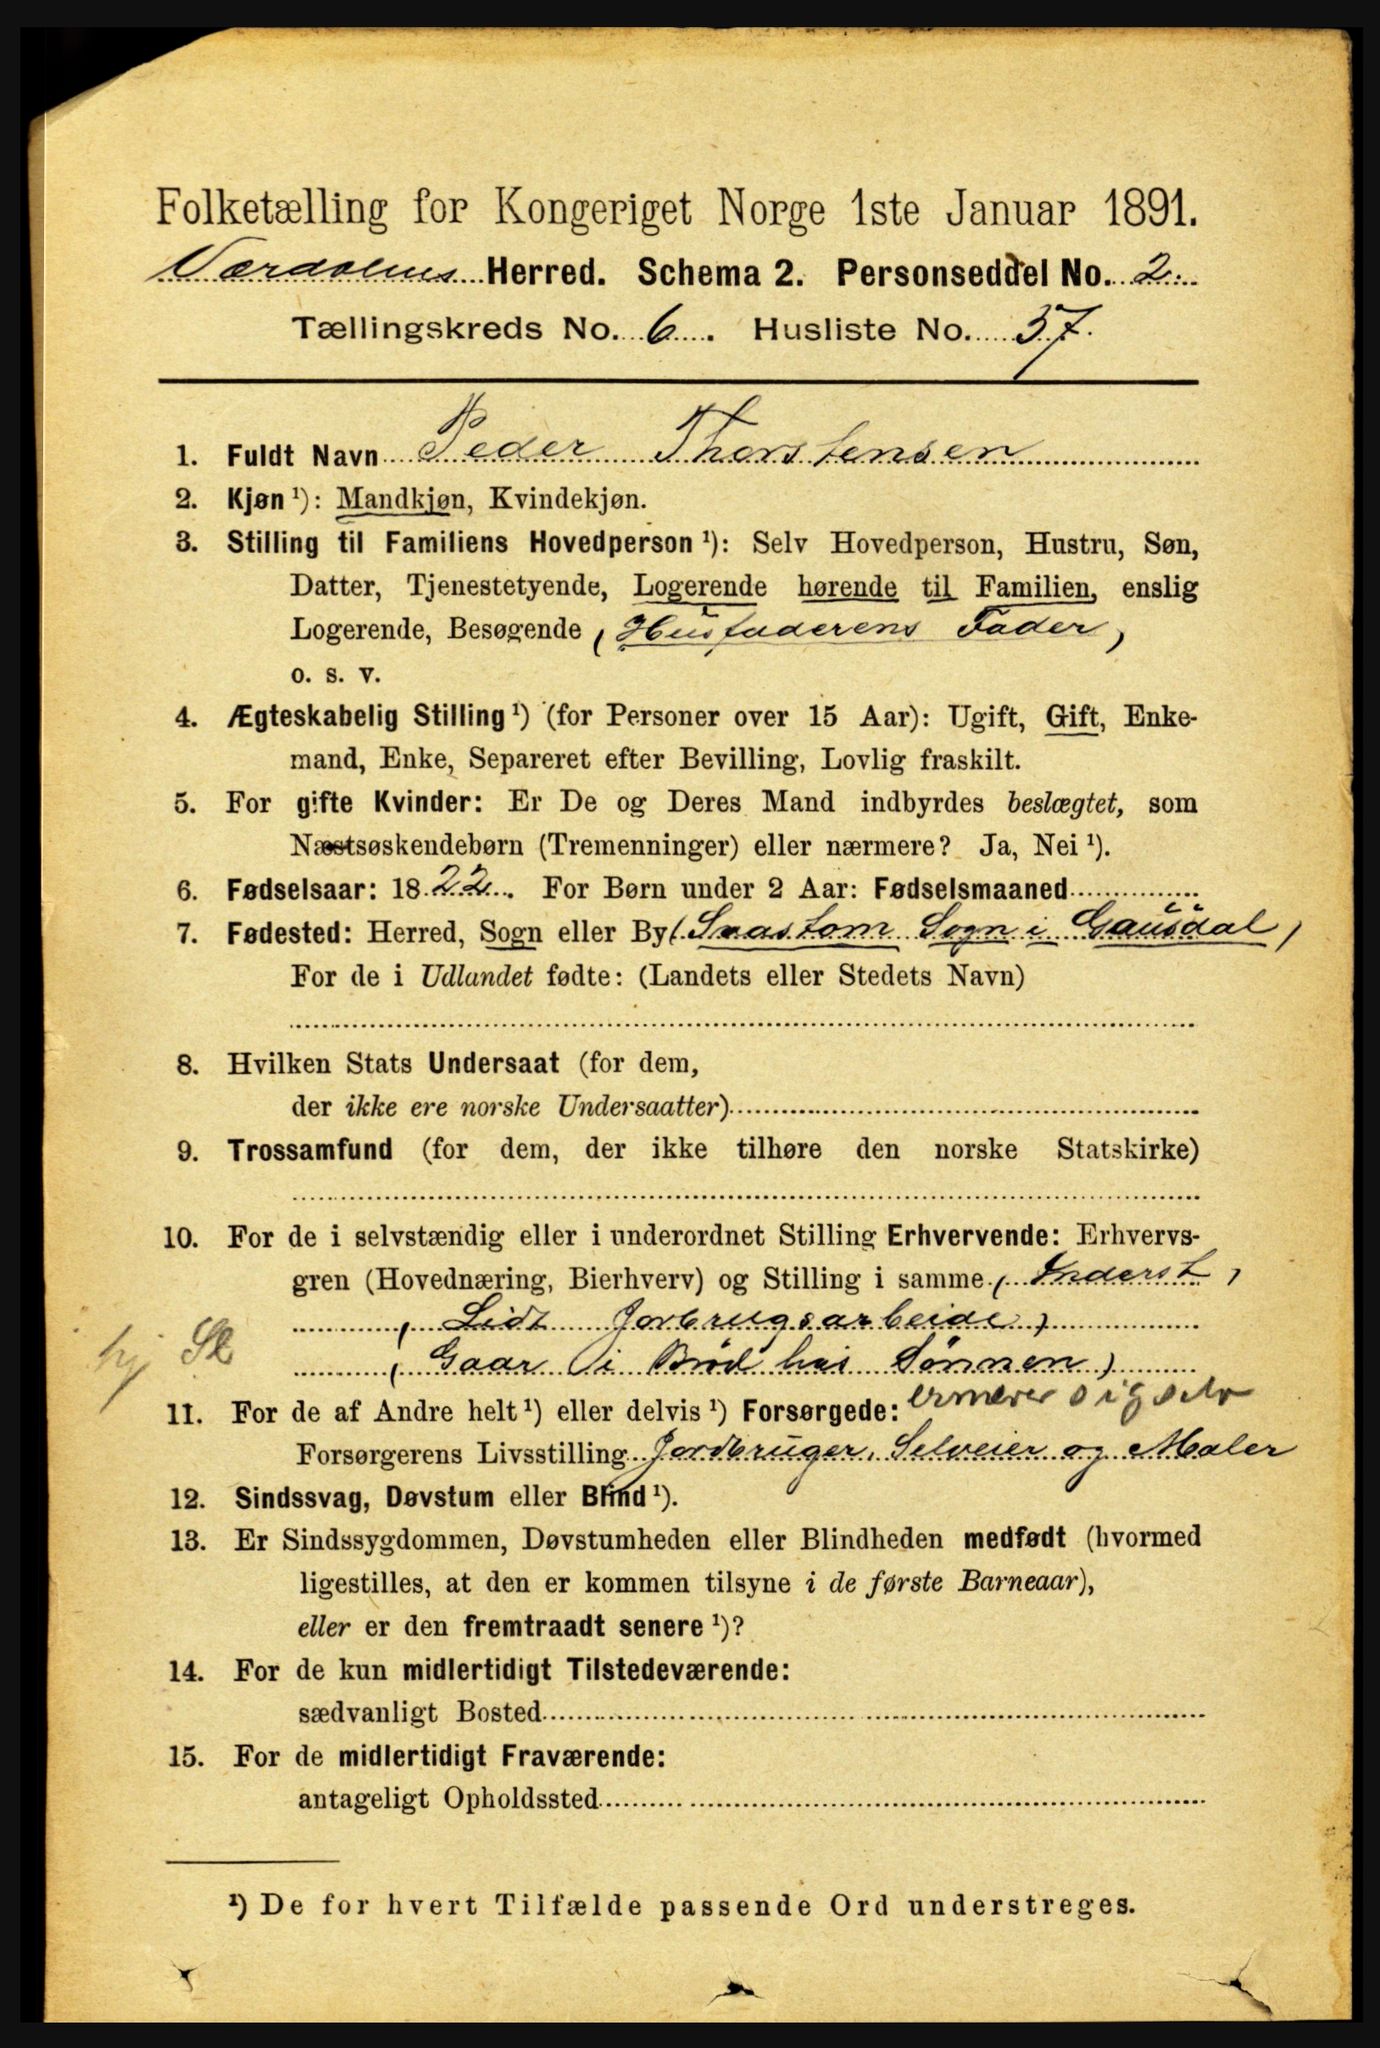 Folketælling for Kongeriget Norge 1ste Januar 1891.
Værdalens Herred. Schema 2. Personseddel No. 2.
Tællingskreds No. 6. Husliste No. 37.
1. Fuldt Navn Peder Thorstensen
2. Kjøn ¹): Mandkjøn, Kvindekjøn.
3. Stilling til Familiens Hovedperson ¹): Selv Hovedperson, Hustru, Søn,
Datter, Tjenestetyende, Logerende hørende til Familien, enslig
Logerende, Besøgende (Husfaderens Fader)
o. s. v.
4. Ægteskabelig Stilling ¹) (for Personer over 15 Aar): Ugift, Gift, Enke-
mand, Enke, Separeret efter Bevilling, Lovlig fraskilt.
5. For gifte Kvinder: Er De og Deres Mand indbyrdes beslægtet, som
Næstsøskendebørn (Tremenninger) eller nærmere? Ja, Nei ¹).
6. Fødselsaar: 1822. For Børn under 2 Aar: Fødselsmaaned
7. Fødested: Herred, Sogn eller By (Svastom Sogn i Gausdal)
For de i Udlandet fødte: (Landets eller Stedets Navn)
8. Hvilken Stats Undersaat (for dem,
der ikke ere norske Undersaatter)
9. Trossamfund (for dem, der ikke tilhøre den norske Statskirke)
10. For de i selvstændig eller i underordnet Stilling Erhvervende: Erhvervs-
gren (Hovednæring, Bierhverv) og Stilling i samme (Inderst)
(Lidt Jorbrugsarbeide)
(Gaar i Brød hos Sønnen)
11. For de af Andre helt ¹) eller delvis ¹) Forsørgede: ernærer sig selv
Forsørgerens Livsstilling Jordbruger, Selveier og Maler
12. Sindssvag, Døvstum eller Blind ¹).
13. Er Sindssygdommen, Døvstumheden eller Blindheden medfødt (hvormed
ligestilles, at den er kommen tilsyne i de første Barneaar),
eller er den fremtraadt senere ¹)?
14. For de kun midlertidigt Tilstedeværende:
sædvanligt Bosted
15. For de midlertidigt Fraværende:
antageligt Opholdssted
¹) De for hvert Tilfælde passende Ord understreges.